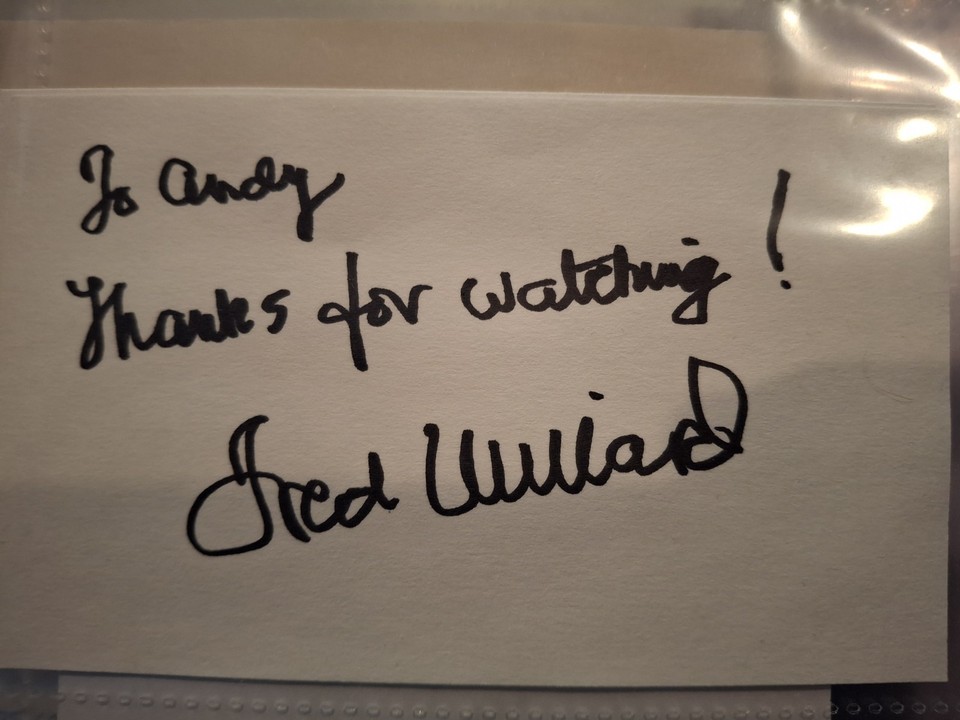 To Andy
Thanks for watching!
Fred Willard